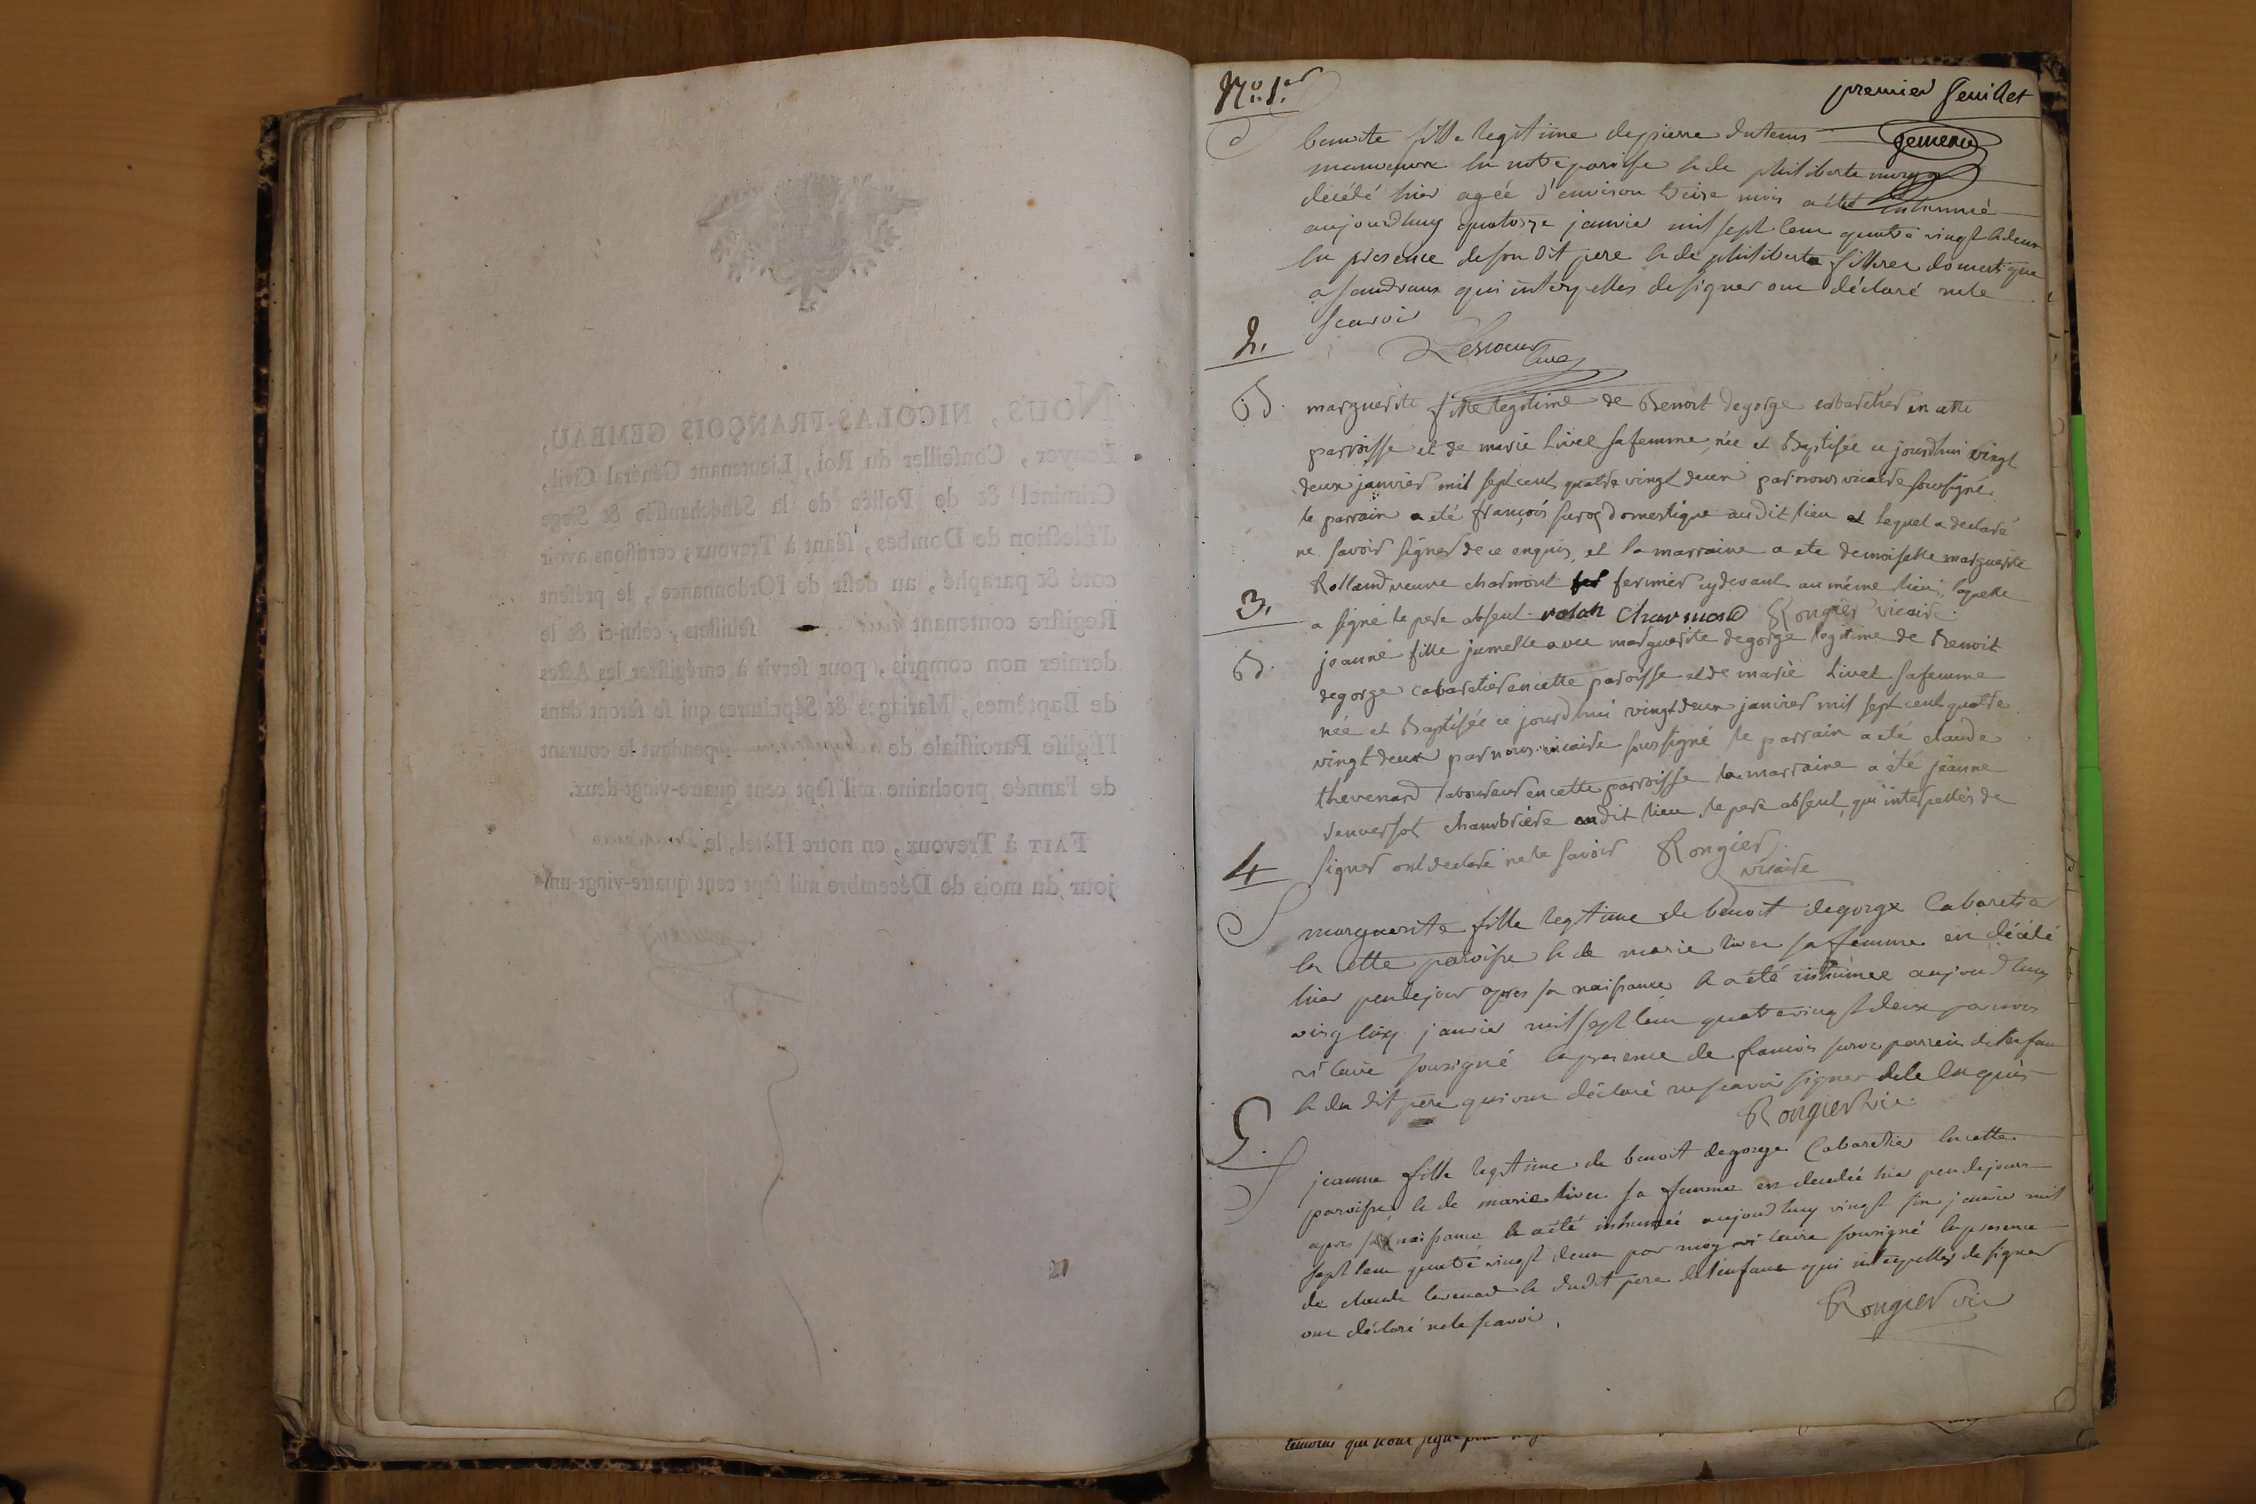 NOUS, NICOLAS-FRANÇOIS GEMEAU,
Ecuyer, Conseiller du Roi, Lieutenant Général Civil,
Criminel & de Police de la Sénéchaussée & Siege
d'Election de Dombes, séant à Trevoux; certifions avoir
coté & paraphé, au desir de l'Ordonnance, le présent
Registre contenant feuillets, celui-ci & le
dernier non compris, pour servir à enrégistrer les Actes
de Baptêmes, Mariages & Sépultures qui se feront dans
l'Église Paroissiale de pendant le courant
de l'année prochaine mil sept cent quatre-vingt-deux.
FAIT à Trevoux, en notre Hôtel, le
jour du mois de Décembre mil sept cent quatre-vingt-un
No. 1er
premier feuillet
gemeau
benoite fille legitime de pierre dutems
manoeuvre en notre paroisse & de philiberte
décédé hier agéé d'environ treize mois a été inhumé
aujourdhuy quatorze janvier mil sept cent quatre vingt & deux
en presence de son dit pere & de philiberte domestique
a sandrans qui interpelles de signer ont déclaré ne le
scavoir
2.
B. marguerite fille legitime de Benoit degorge cabaretier en cette
parroisse et de marie Livet sa femme, née et Baptisée ce jourdhui vingt
deux janvier mil sept cent quatre vingt deux par nous vicaire soussigné
le parrain a eté françois domestique audit lieu et lequel a declaré
ne savoir signer de ce enquis, et la marraine a ete demoiselle marguerite
Rolland veuve charmont fermier cydevant au même lieu, laquelle
a signé le pere absent rolan Charmond Rongier vicaire
3.
B. jeanne fille jumelle avec marguerite degorge legitime de Benoit
degorge cabaretier en cette paroisse et de marie Livet sa femme
née et Baptisée ce jourd'hui vingt deux janvier mil sept cent quatre
vingt deux par nous vicaire soussigné le parrain a eté claude
thevenard laboureur en cette parroisse la marraine a été jeanne
chambriere audit lieu, le pere absent, qui interpellés de
signer ont declaré ne le savoir Rongier
vicaire
4
S marguerite fille legitime de benoit degorge Cabaretier
en cette paroisse & de marie livet sa femme en décédé
hier peu de jour apres sa naissance & a été inhumée aujourd'huy
janvier mil sept cent quatre vingt deux par nous
vicaire sousigné en presence de francois parrein de l'enfant
& du dit pere qui ont déclaré ne scavoir signer de ce enquis
Rongier vic.
5.
S jeanne fille legitime de benoit degorge Cabaretier en cette
paroisse & de marie livet sa femme est decedée hier peu de jours
apres sa naissance & a été inhumée aujourdhuy vingt six janvier mil
sept cent quatre vingt deux par moy vicaire sousigné en presence
de claude tevenard & du dit pere de l'enfant qui interpelles de signer
ont déclaré ne le scavoir.
Rongier vic